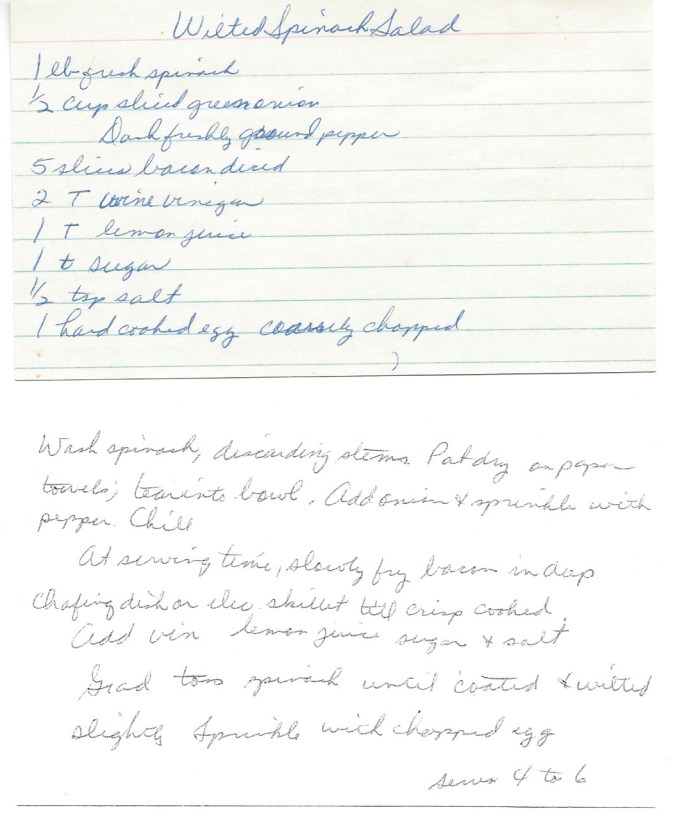 Wilted Spinach Salad
1 lb fresh spinach
1/2 cup sliced green onion
Dash freshly ground pepper
5 slices bacon diced
2 T wine vinegar
1 T lemon juice
1 t sugar
1/2 tsp salt
1 hard cooked egg coarsely chopped
Wash spinach, discarding stems. Pat dry on paper
towels; tear into bowl. Add onion & sprinkle with
pepper. Chill
At serving time, slowly fry bacon in deep
chafing dish or elec. skillet till crisp cooked.
Add vin lemon juice sugar & salt
Grad toss spinach until coated & wilted
slightly Sprinkle with chopped egg
serves 4 to 6